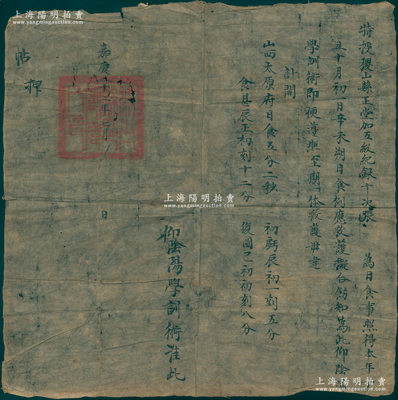 上海陽明拍賣
特授梁山縣正堂加五級紀錄十次張 為日食事照得本年
五十月初一日辛未朔日食例應救護擬合飭知為此仰陰
學訓術即便遵照至期一体救護毋違
計開
山西太原府日食五分二秒 初虧辰初一刻五分
食甚辰正初刻十二分 復圓巳初初刻八分
仰陰陽學訓術准此
嘉慶 年七月
日
押
上海陽明拍賣
www.hmyoung.com